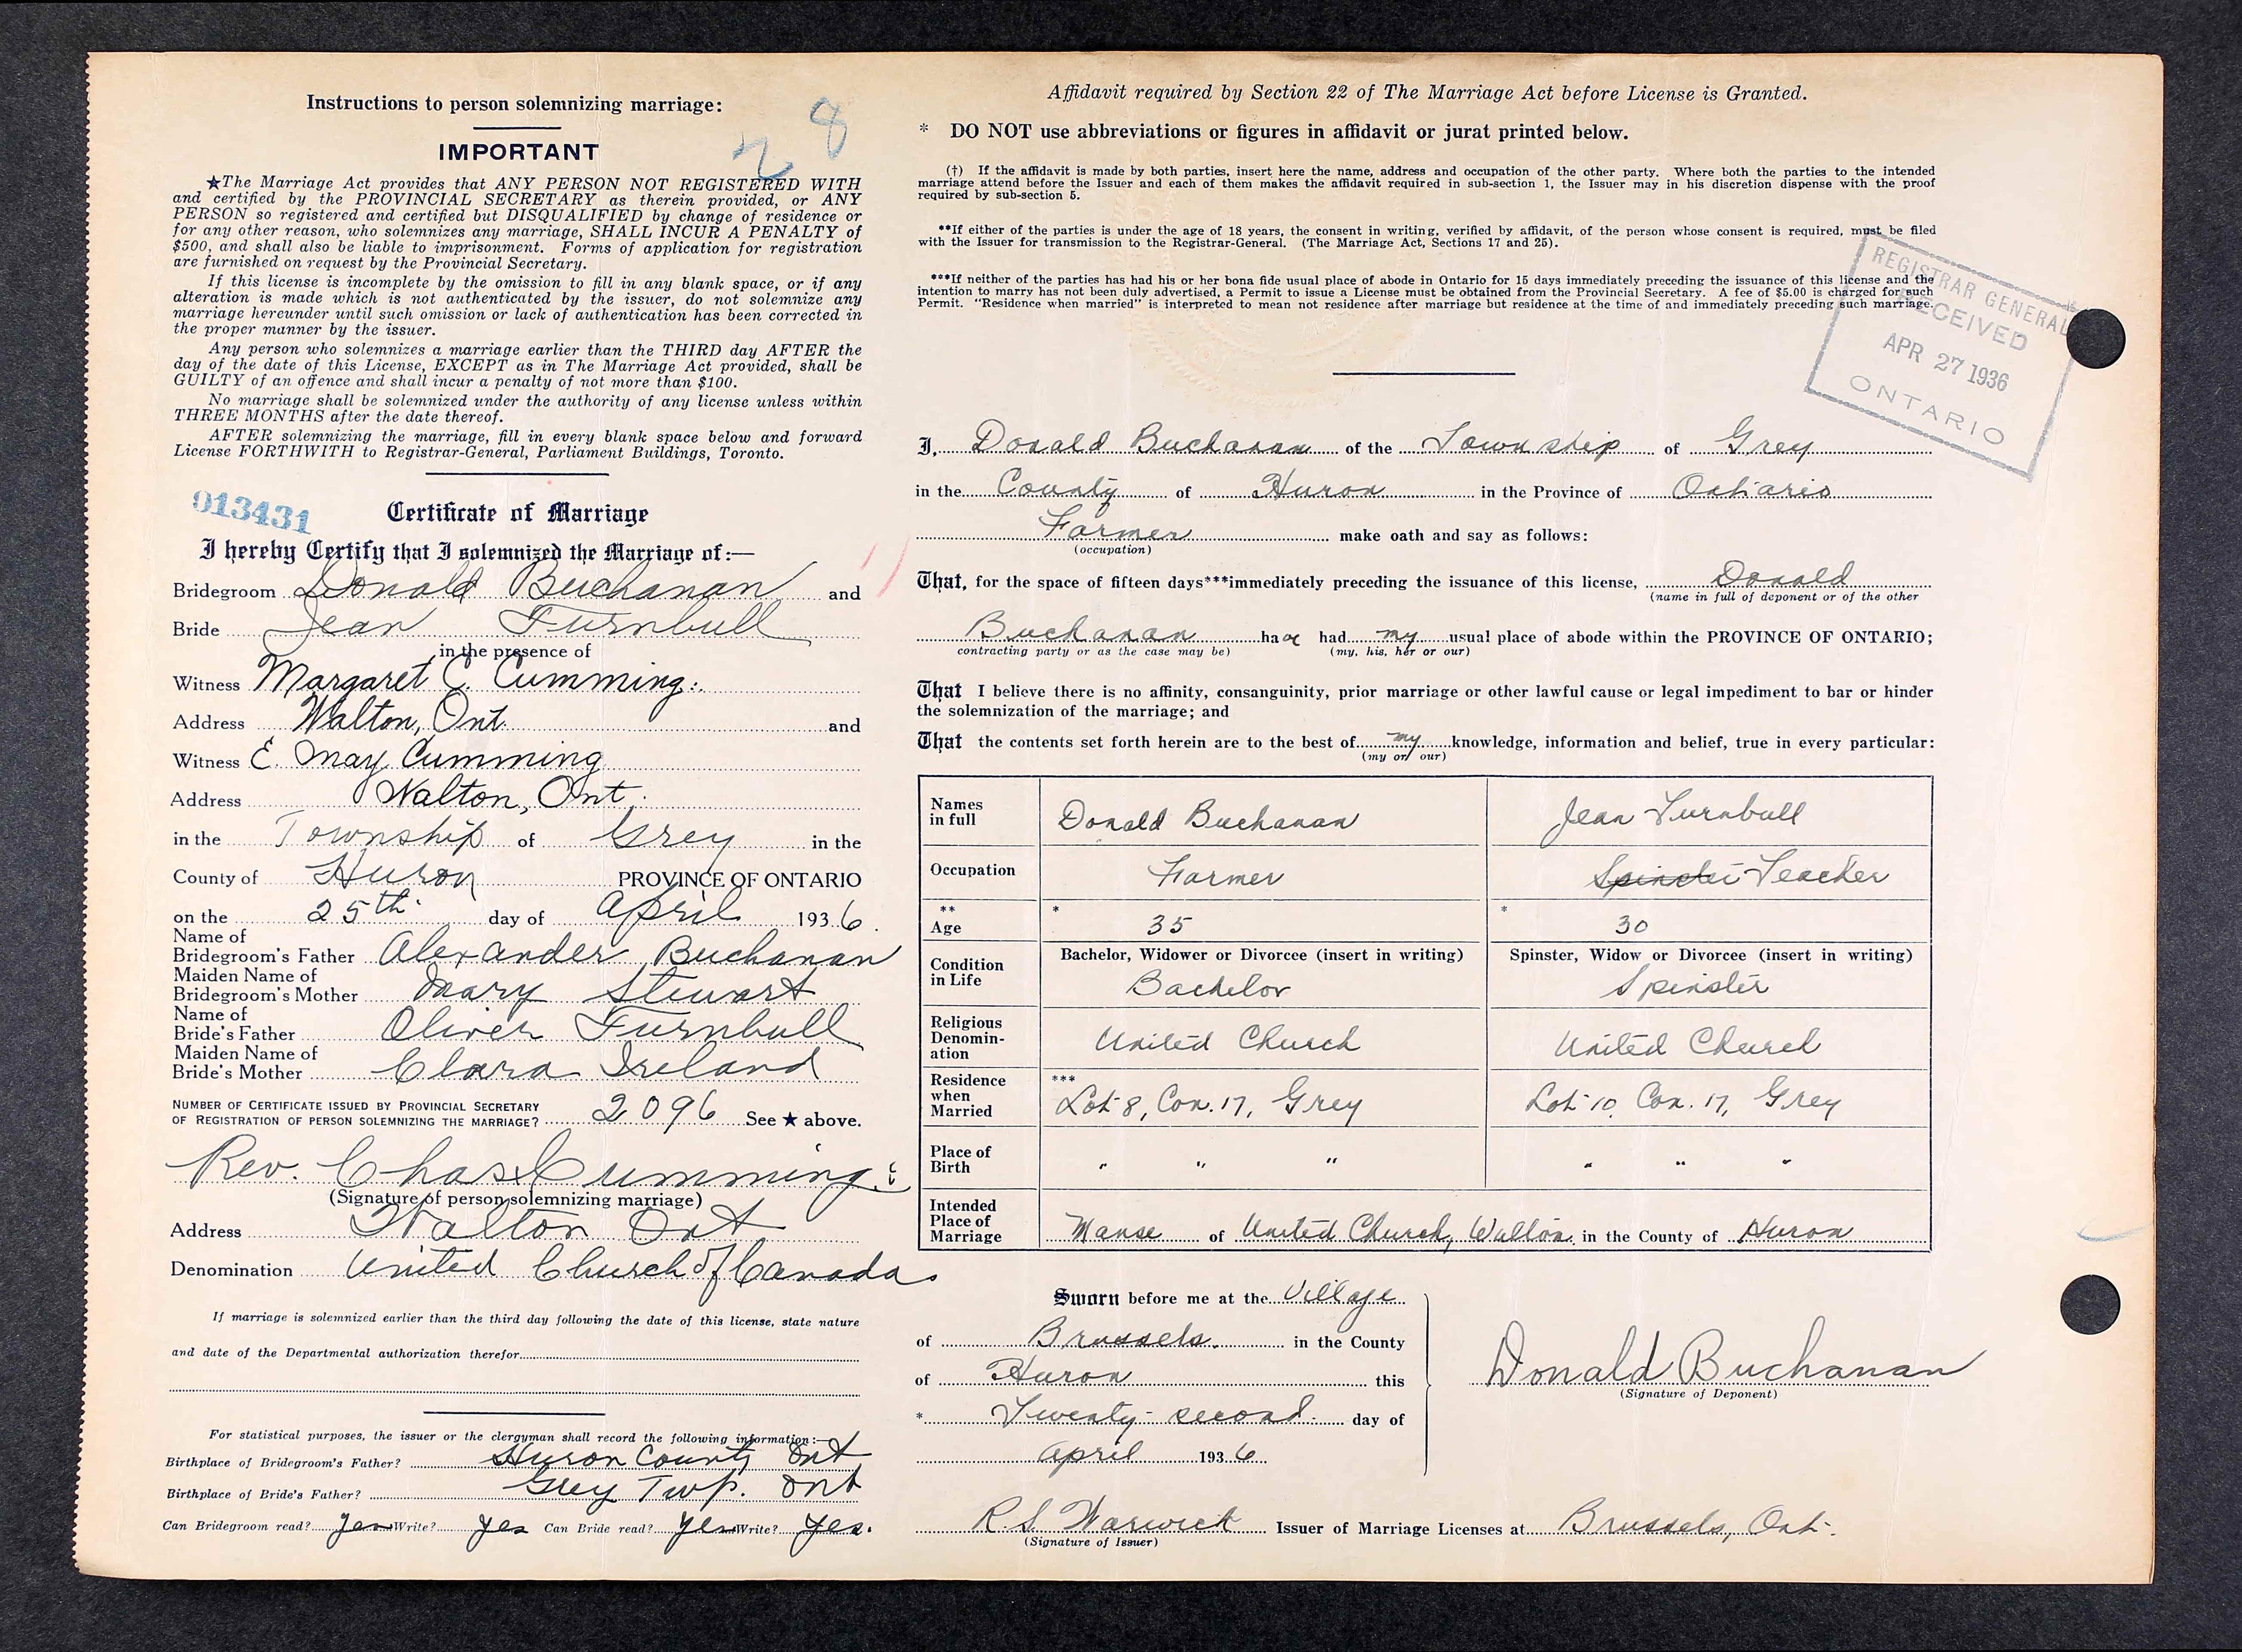 Instructions to person solemnizing marriage:
28
IMPORTANT
★The Marriage Act provides that ANY PERSON NOT REGISTERED WITH
and certified by the PROVINCIAL SECRETARY as therein provided, or ANY
PERSON so registered and certified but DISQUALIFIED by change of residence or
for any other reason, who solemnizes any marriage, SHALL INCUR A PENALTY of
$500, and shall also be liable to imprisonment. Forms of application for registration
are furnished on request by the Provincial Secretary.
If this license is incomplete by the omission to fill in any blank space, or if any
alteration is made which is not authenticated by the issuer, do not solemnize any
marriage hereunder until such omission or lack of authentication has been corrected in
the proper manner by the issuer.
Any person who solemnizes a marriage earlier than the THIRD day AFTER the
day of the date of this License, EXCEPT as in The Marriage Act provided, shall be
GUILTY of an offence and shall incur a penalty of not more than $100.
No marriage shall be solemnized under the authority of any license unless within
THREE MONTHS after the date thereof.
AFTER solemnizing the marriage, fill in every blank space below and forward
License FORTHWITH to Registrar-General, Parliament Buildings, Toronto.
013431
Certificate of Marriage
I hereby Certify that I solemnized the Marriage of:—
Bridegroom Donald Buchanan and
Bride Jean Turnbull
in the presence of
Witness Margaret C. Cumming.
Address Walton, Ont. and
Witness E. May Cumming
Address Walton, Ont.
in the Township of Grey in the
County of Huron PROVINCE OF ONTARIO
on the 25th day of April 1936.
Name of
Bridegroom's Father Alexander Buchanan
Maiden Name of
Bridegroom's Mother Mary Stewart
Name of
Bride's Father Oliver Turnbull
Maiden Name of
Bride's Mother Clara Ireland
NUMBER OF CERTIFICATE ISSUED BY PROVINCIAL SECRETARY
OF REGISTRATION OF PERSON SOLEMNIZING THE MARRIAGE? 2096 See ★ above.
Rev. Chas Cumming
(Signature of person solemnizing marriage)
Address Walton Ont
Denomination United Church of Canada
If marriage is solemnized earlier than the third day following the date of this license, state nature
and date of the Departmental authorization therefor
For statistical purposes, the issuer or the clergyman shall record the following information:—
Birthplace of Bridegroom's Father? Huron County Ont
Birthplace of Bride's Father? Grey Twp. Ont
Can Bridegroom read? Yes Write? Yes Can Bride read? Yes Write? Yes.
Affidavit required by Section 22 of The Marriage Act before License is Granted.
* DO NOT use abbreviations or figures in affidavit or jurat printed below.
(†) If the affidavit is made by both parties, insert here the name, address and occupation of the other party. Where both the parties to the intended
marriage attend before the Issuer and each of them makes the affidavit required in sub-section 1, the Issuer may in his discretion dispense with the proof
required by sub-section 5.
**If either of the parties is under the age of 18 years, the consent in writing, verified by affidavit, of the person whose consent is required, must be filed
with the Issuer for transmission to the Registrar-General. (The Marriage Act, Sections 17 and 25).
***If neither of the parties has had his or her bona fide usual place of abode in Ontario for 15 days immediately preceding the issuance of this license and the
intention to marry has not been duly advertised, a Permit to issue a License must be obtained from the Provincial Secretary. A fee of $5.00 is charged for such
Permit. "Residence when married" is interpreted to mean not residence after marriage but residence at the time of and immediately preceding such marriage.
REGISTRAR GENERAL
RECEIVED
APR 27 1936
ONTARIO
I, Donald Buchanan of the Township of Grey
in the County of Huron in the Province of Ontario
Farmer make oath and say as follows:
(occupation)
That, for the space of fifteen days***immediately preceding the issuance of this license, Donald
(name in full of deponent or of the other
Buchanan ha had my usual place of abode within the PROVINCE OF ONTARIO;
contracting party or as the case may be) (my, his, her or our)
That I believe there is no affinity, consanguinity, prior marriage or other lawful cause or legal impediment to bar or hinder
the solemnization of the marriage; and
That the contents set forth herein are to the best of my knowledge, information and belief, true in every particular:
(my or our)
Names
in full Donald Buchanan Jean Turnbull
Occupation Farmer Spinster Teacher
** * *
Age 35 30
Condition
in Life
Bachelor, Widower or Divorcee (insert in writing) Spinster, Widow or Divorcee (insert in writing)
Bachelor Spinster
Religious
Denomin-
ation United Church United Church
Residence
when
Married *** Lot 8, Con. 17, Grey Lot 10, Con. 17, Grey
Place of
Birth " " " " " "
Intended
Place of
Marriage Manse of United Church, Walton in the County of Huron
Sworn before me at the Village
of Brussels. in the County
of Huron this
* Twenty-second day of
April 1936
Donald Buchanan
(Signature of Deponent)
R.S. Warwick Issuer of Marriage Licenses at Brussels, Ont.
(Signature of Issuer)